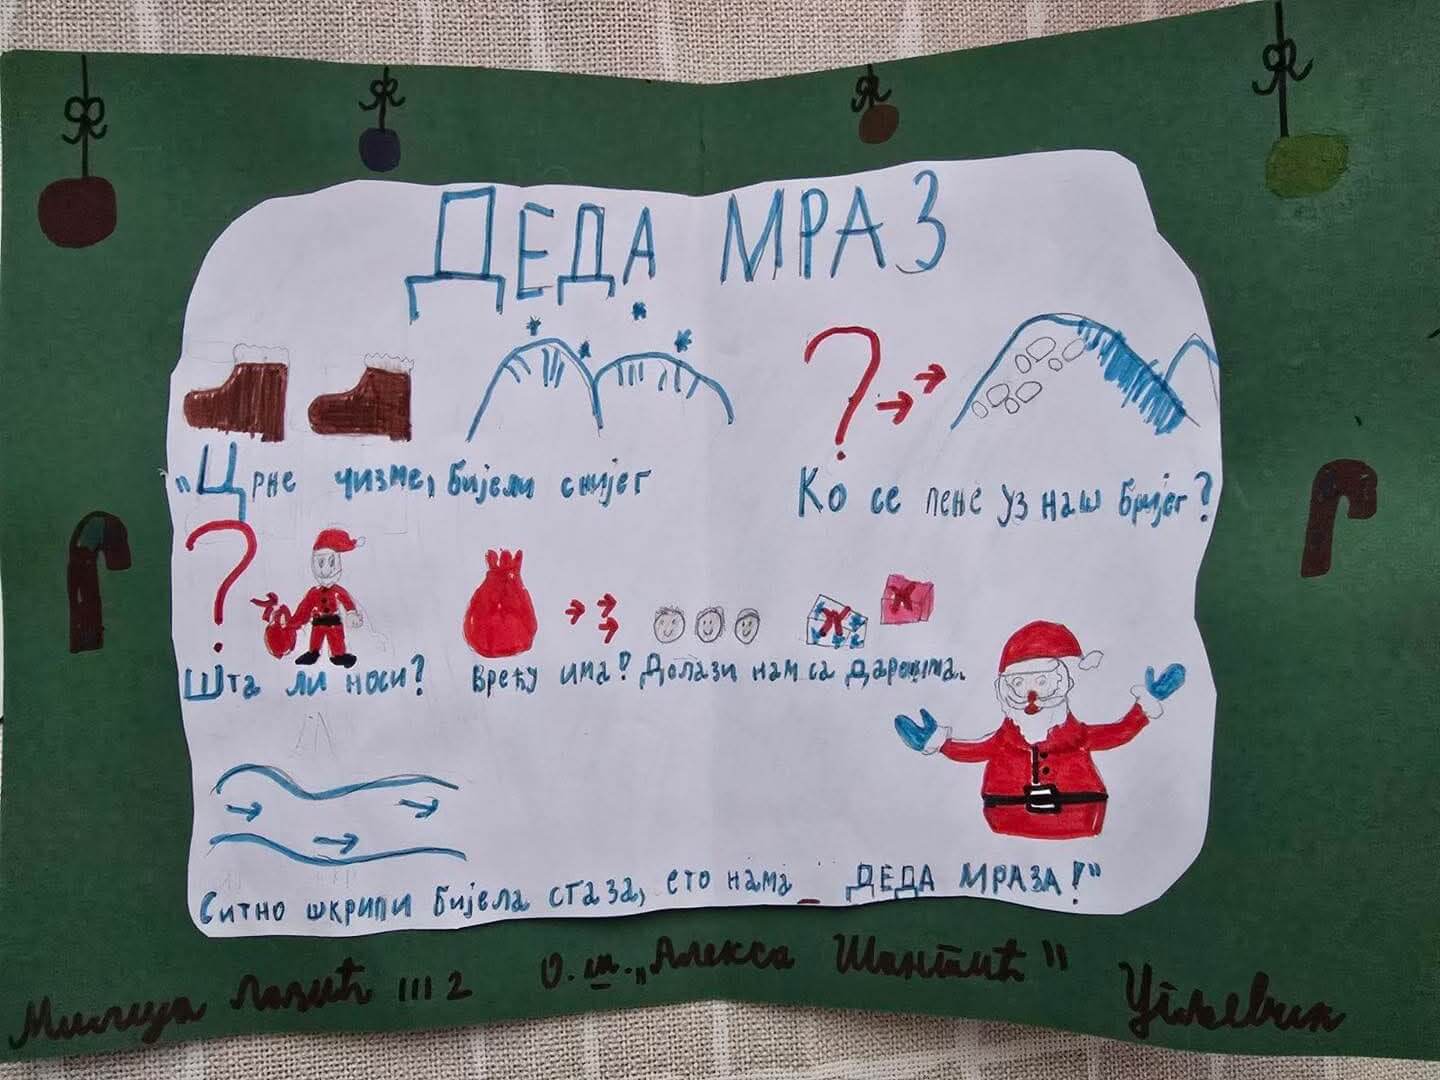 ДЕДА МРАЗ
"Црне чизме, бијели снијег
Ко се пење уз наш бријег?
Шта ли носи? Врећу има! Долази нам са даровима.
Ситно шкрипи бијела стаза, ето нама _ ДЕДА МРАЗА!"
Милица Лазић III 2 О.ш. „Алекса Шантић" Угљевик